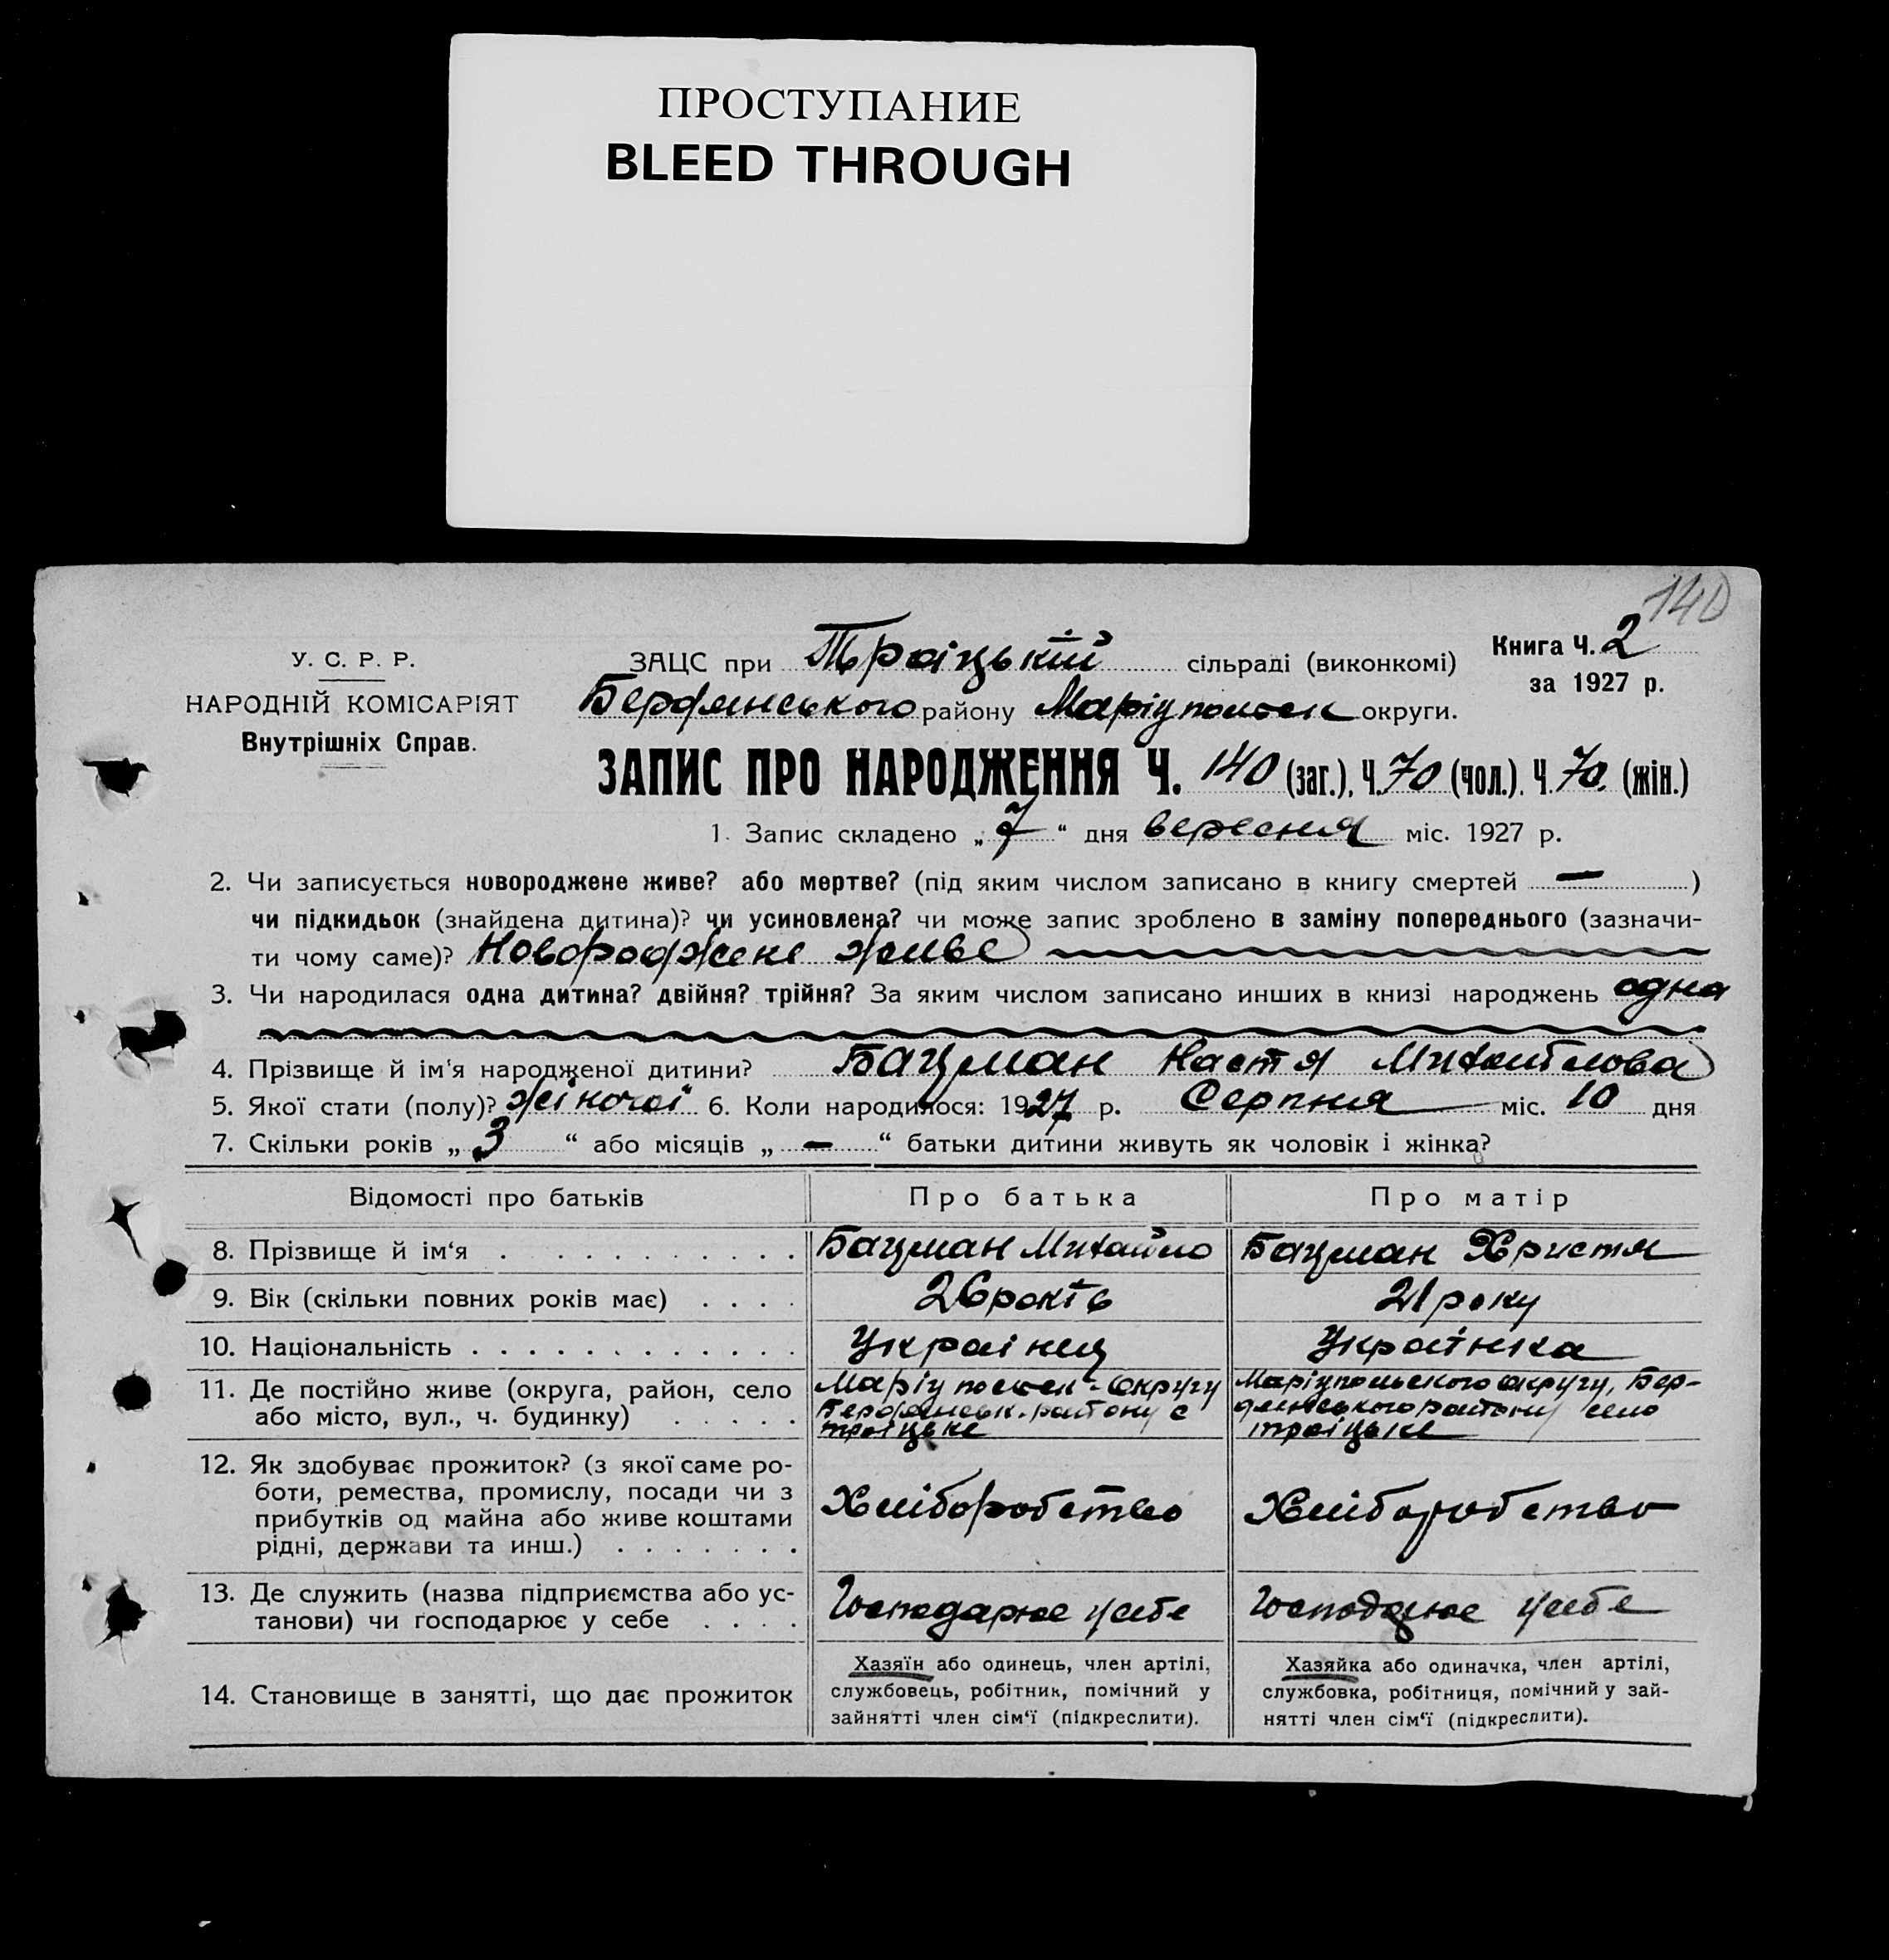 ПРОСТУПАНИЕ
BLEED THROUGH
140
У. С. Р. Р.
НАРОДНІЙ КОМІСАРІЯТ
Внутрішніх Справ.
ЗАЦС при Троіцькій сільраді (виконкомі)
Книга Ч. 2
за 1927 р.
Бердянського району Маріупольськ округи.
ЗАПИС ПРО НАРОДЖЕННЯ Ч. 140 (заг.), Ч. 70 (чол.). Ч. 70. (жін.)
1. Запис складено „ 7 “ дня вересня міс. 1927 р.
2. Чи записується новороджене живе? або мертве? (під яким числом записано в книгу смертей — )
чи підкидьок (знайдена дитина)? чи усиновлена? чи може запис зроблено в заміну попереднього (зазначи-
ти чому саме)? Новороджене живе
3. Чи народилася одна дитина? двійня? трійня? За яким числом записано инших в книзі народжень одна
4. Прізвище й ім‘я народженої дитини? Бацман Настя Михайлова
5. Якої стати (полу)? жіночоі 6. Коли народилося: 1927 р. Серпня міс. 10 дня
7. Скільки років „ 3 “ або місяців „ — “ батьки дитини живуть як чоловік і жінка?
Відомості про батьків
Про батька
Про матір
8. Прізвище й ім‘я . . . . . . . . . .
Бацман Михайло
Бацман Христя
9. Вік (скільки повних років має) . . . .
26 років
21 року
10. Національність . . . . . . . . . . . .
Украінец
Украінка
11. Де постійно живе (округа, район, село
або місто, вул., ч. будинку) . . . . .
Маріупольськ-Округу
Бердянськ. району с
троіцьке
Маріупольского округу, Бер-
дянського району село
троіцьке
12. Як здобуває прожиток? (з якої саме ро-
боти, ремества, промислу, посади чи з
прибутків од майна або живе коштами
рідні, держави та инш.) . . . . . . .
Хліборобство
Хліборобство
13. Де служить (назва підприємства або ус-
танови) чи господарює у себе . . . .
Господарює у себе
Господарює у себе
14. Становище в занятті, що дає прожиток
Хазяїн або одинець, член артілі,
службовець, робітник, помічний у
зайнятті член сім‘ї (підкреслити).
Хазяйка або одиначка, член артілі,
службовка, робітниця, помічний у зай-
нятті член сім‘ї (підкреслити).